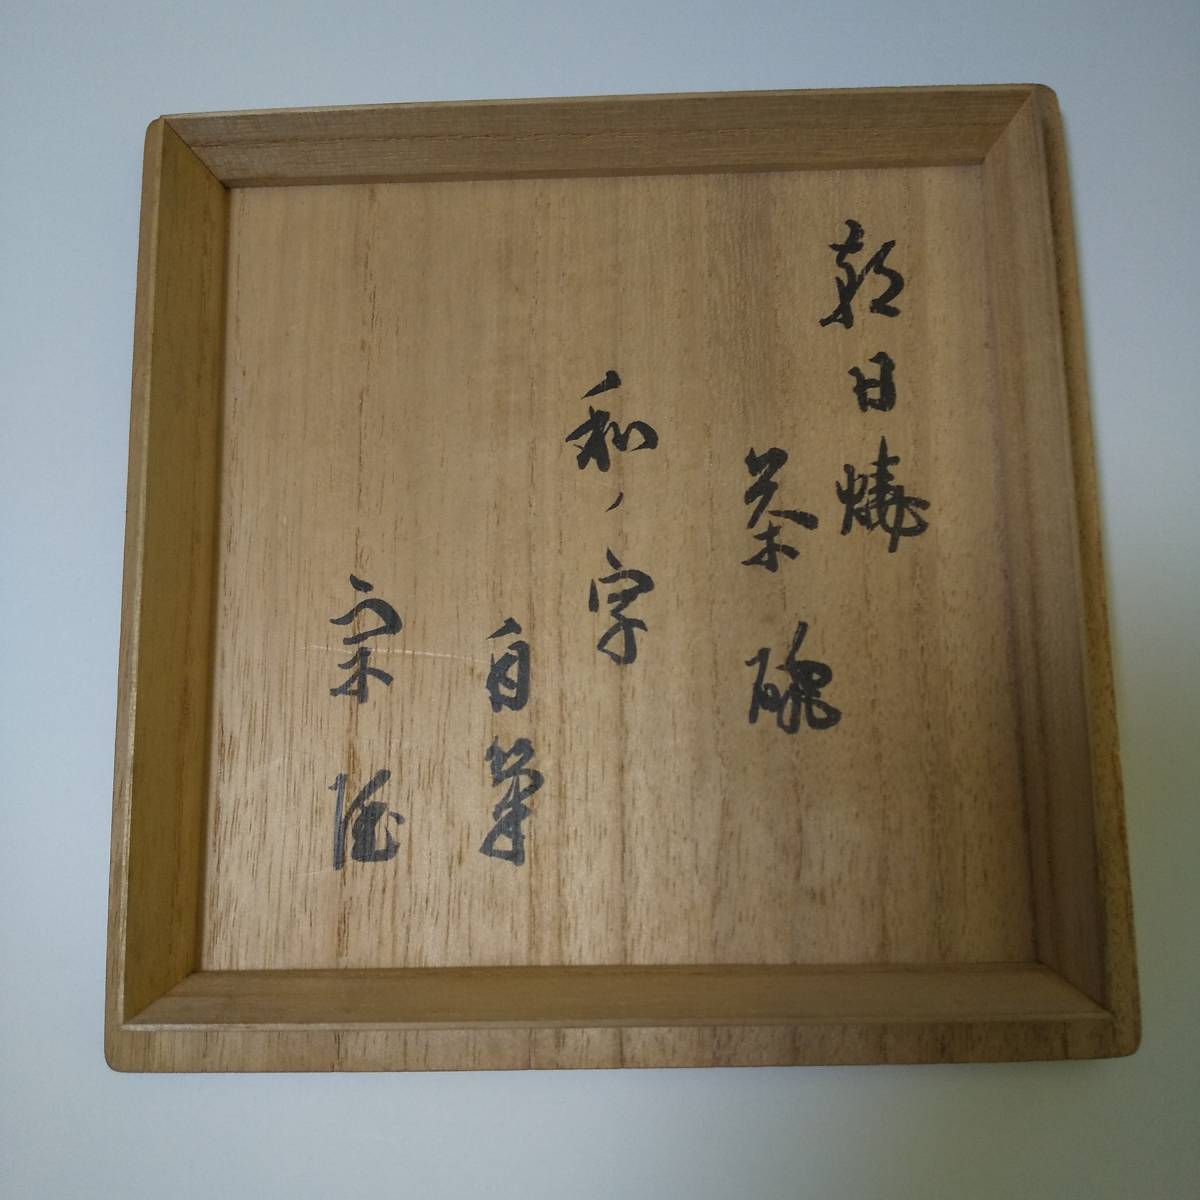 朝日燒
茶碗
和ノ字
自筆
宗